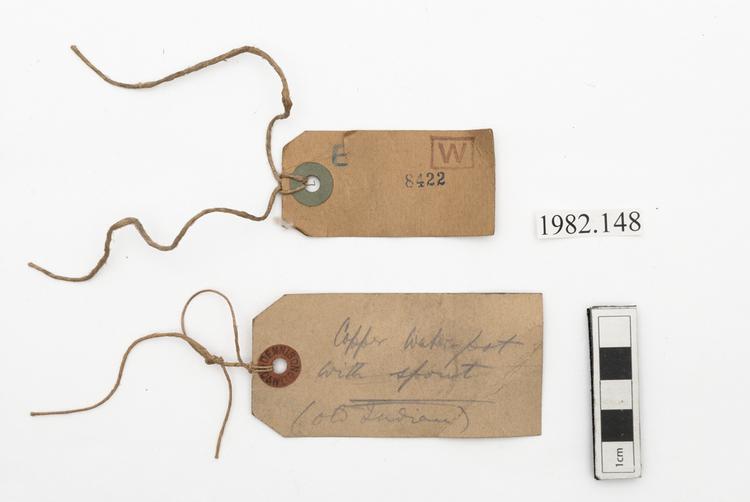 E
W
8422
1982.148
DENNISON
Copper Water-pot
with spout
(old Indian)
1cm